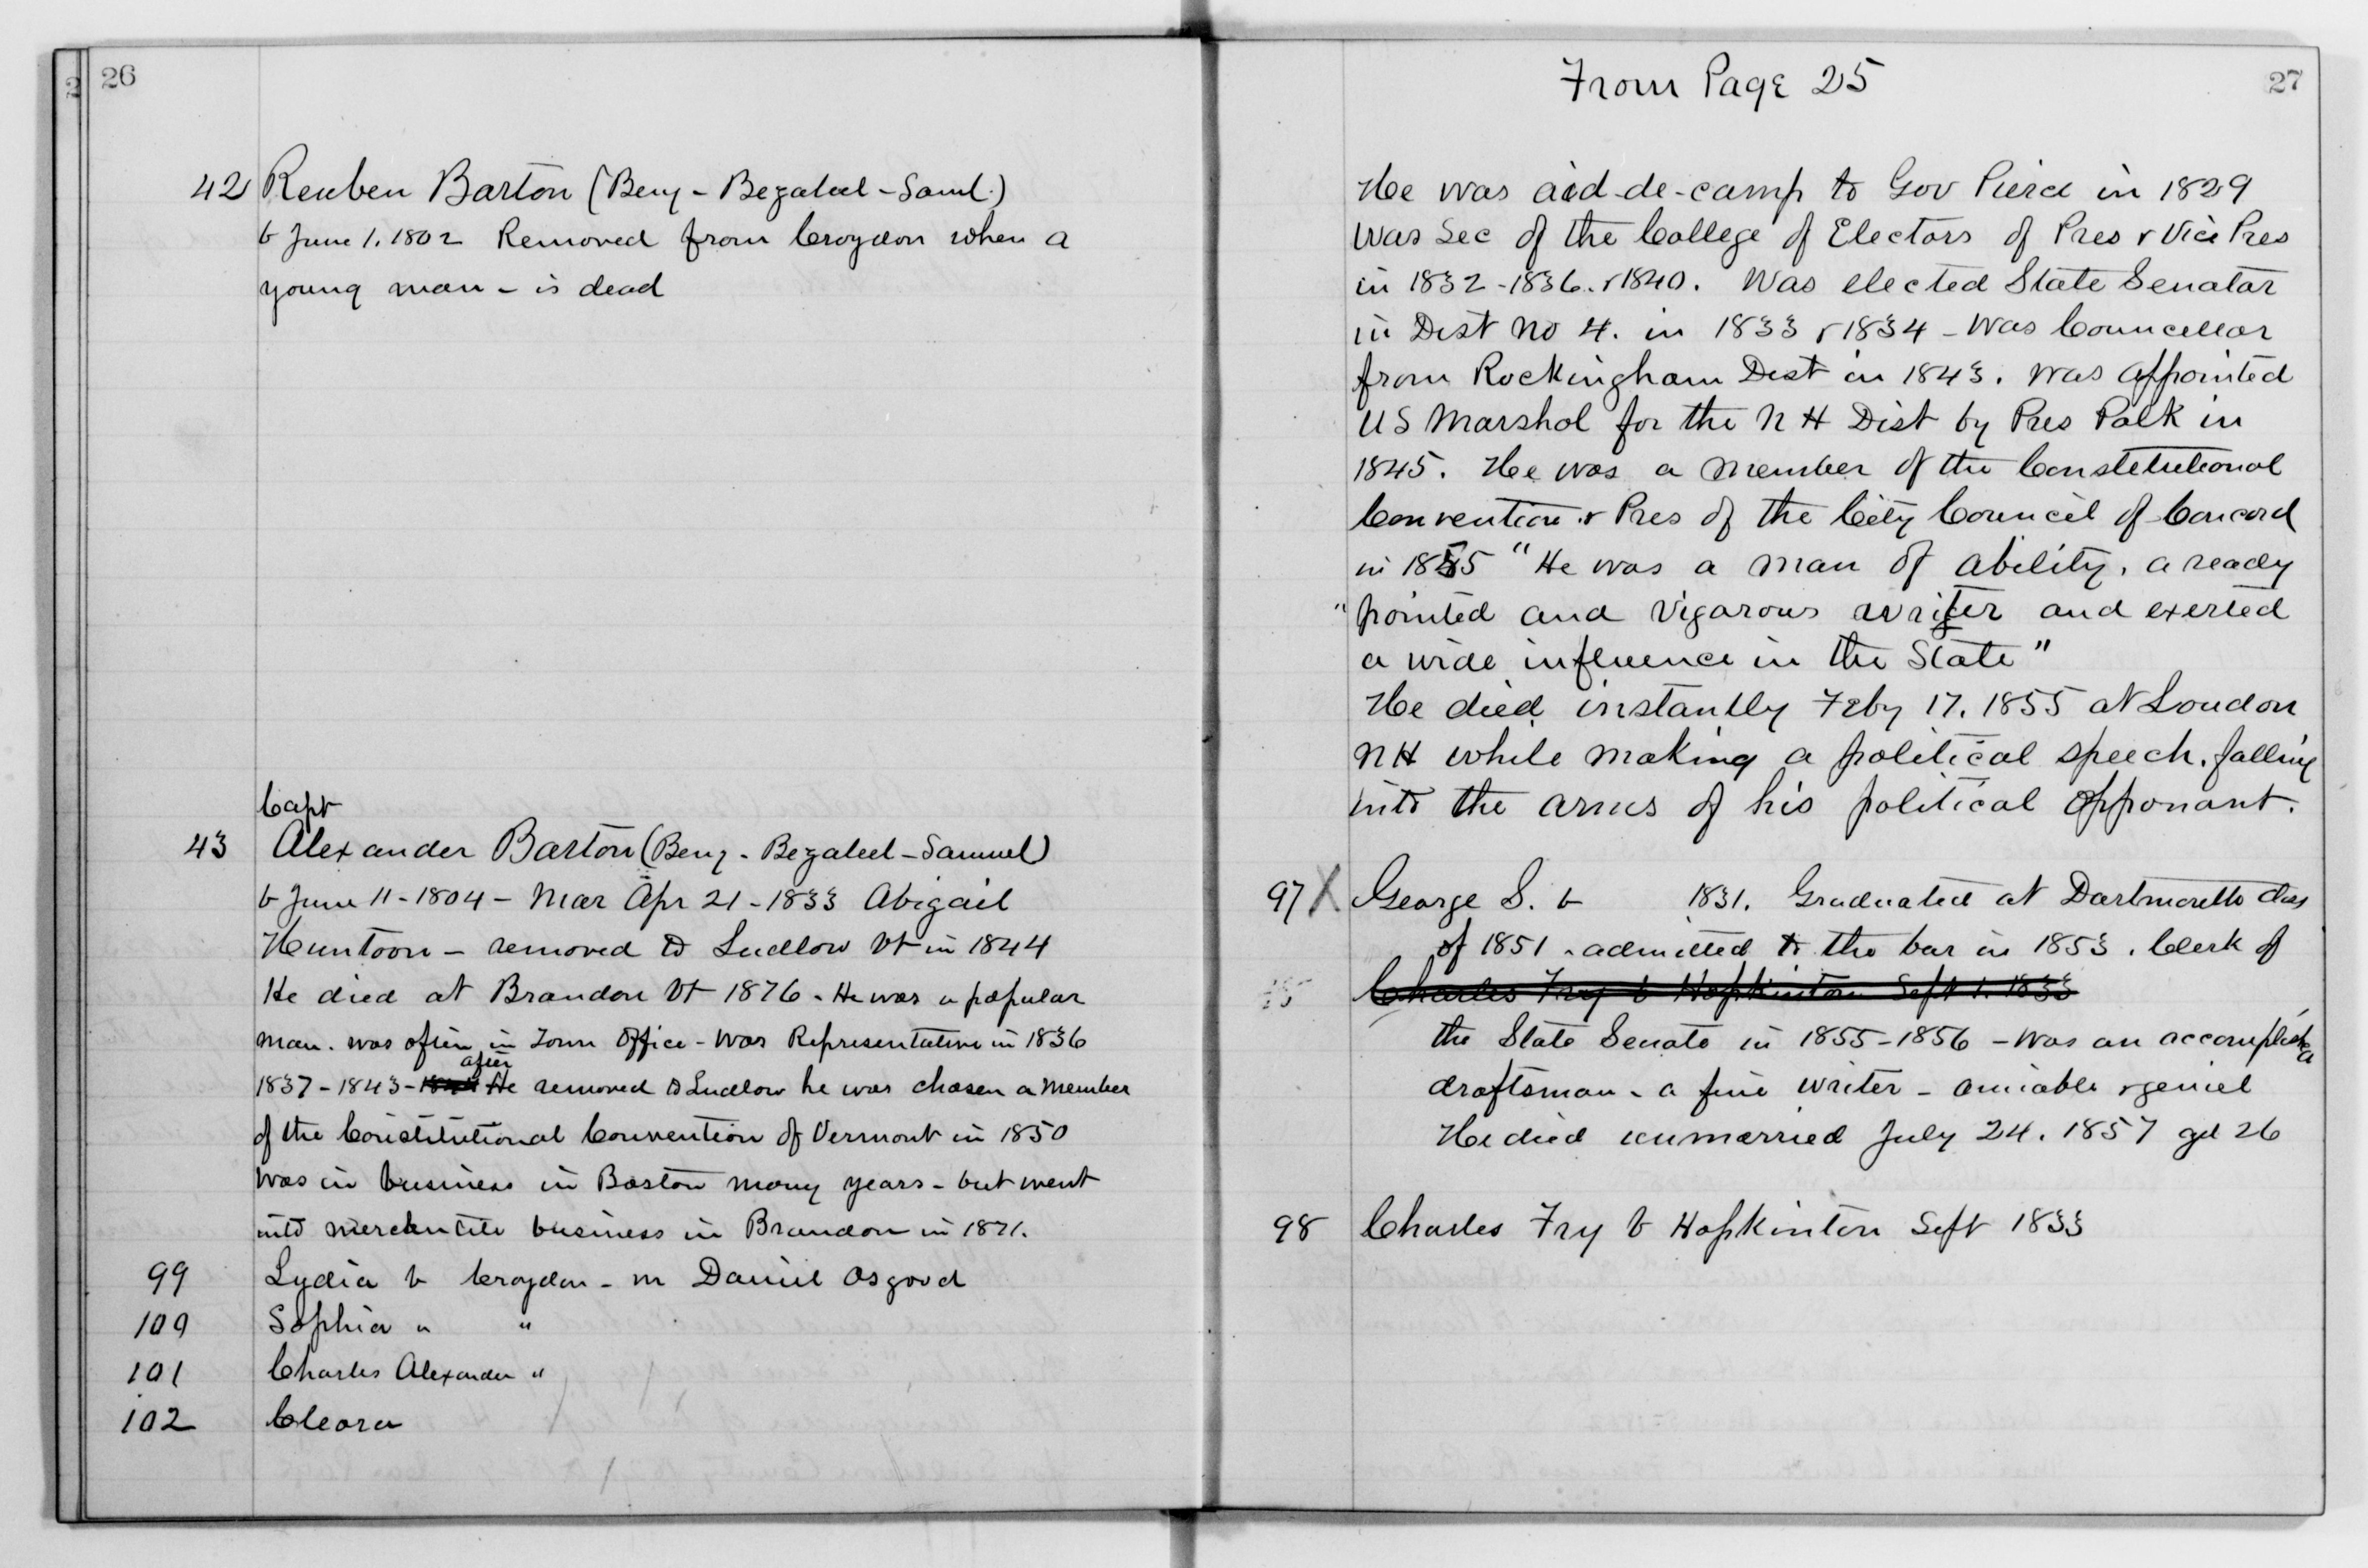 26
42 Reuben Barton (Benj - Bezaleel - Saml.)
b June 1. 1802 Removed from Croydon when a
young man - is dead
Capt
43 Alexander Barton (Benj - Bezaleel - Samuel)
b June 11 - 1804 - Mar Apr 21 - 1833 Abigail
Huntoon - removed to Ludlow Vt in 1844
He died at Brandon Vt 1876. He was a popular
man. was often in Town Office - Was Representative in 1836
after
1837 - 1843 - He removed to Ludlow he was chosen a member
of the Constitutional Convention of Vermont in 1850
Was in business in Boston many years - but went
into mercantile business in Brandon in 1871.
99 Lydia b Croydon - m Daniel Osgood
100 Sophia " "
101 Charles Alexander "
102 Cleora
From Page 25
27
He was aid-de-camp to Gov Pierce in 1829
Was Sec of the College of Electors of Pres & Vice Pres
in 1832 - 1836. & 1840. Was elected State Senator
in Dist No 4. in 1833 & 1834 - Was Councellor
from Rockingham Dist in 1843. Was appointed
US Marshal for the N H Dist by Pres Polk in
1845. He was a member of the Constitutional
Convention & Pres of the City Council of Concord
in 1855 "He was a man of ability, a ready
"pointed and vigorous writer and exerted
a wide influence in the State"
He died instantly Feby 17. 1855 at Loudon
NH while making a political speech. falling
into the arms of his political opponant.
97 X George S. b 1831. Graduated at Dartmouth class
of 1851 - admitted to the bar in 1853. Clerk of
Charles Fry b Hopkinton Sept 1. 1833
the State Senate in 1855 - 1856 - Was an accomplished
draftsman - a fine writer - amiable & genial
He died unmarried July 24. 1857 ged 26
98 Charles Fry b Hopkinton Sept 1833